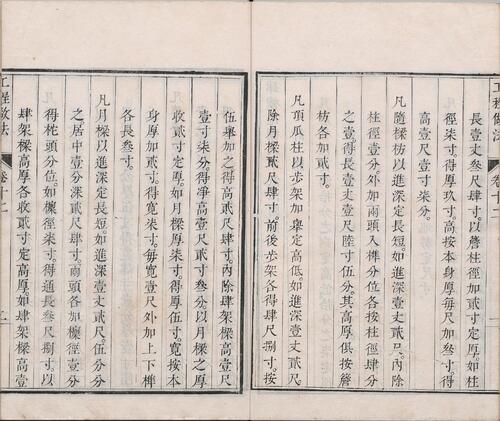 工程做法
卷十二
一
長壹丈叁尺肆寸以簷柱徑定厚如柱
徑柒寸得厚玖寸高按本身厚每尺加叁寸得
高壹尺壹寸柒分
凡隨樑枋以進深定長短如進深壹丈貳尺內除
柱徑壹分外加兩頭入榫分位各按柱徑肆分
之壹得長壹丈壹尺陸寸伍分其高厚俱按簷
枋各加貳寸
凡頂瓜柱以步架加舉定高低如進深壹丈貳尺
除月樑貳尺肆寸前後步架各得肆尺捌寸按
伍舉加之得高貳尺肆寸內除肆架樑高壹尺
壹寸柒分得淨高壹尺貳寸叁分以月樑之厚
收貳寸定厚如月樑厚柒寸得厚伍寸寬按本
身厚加貳寸得寬柒寸每寬壹尺外加上下榫
各長叁寸
凡月樑以進深定長短如進深壹丈貳尺伍分分
之居中壹分深貳尺肆寸兩頭各加檁徑壹分
得柁頭分位如檁徑柒寸得通長叁尺捌寸以
肆架樑高厚各收貳寸定高厚如肆架樑高壹
工程做法
卷十二
二